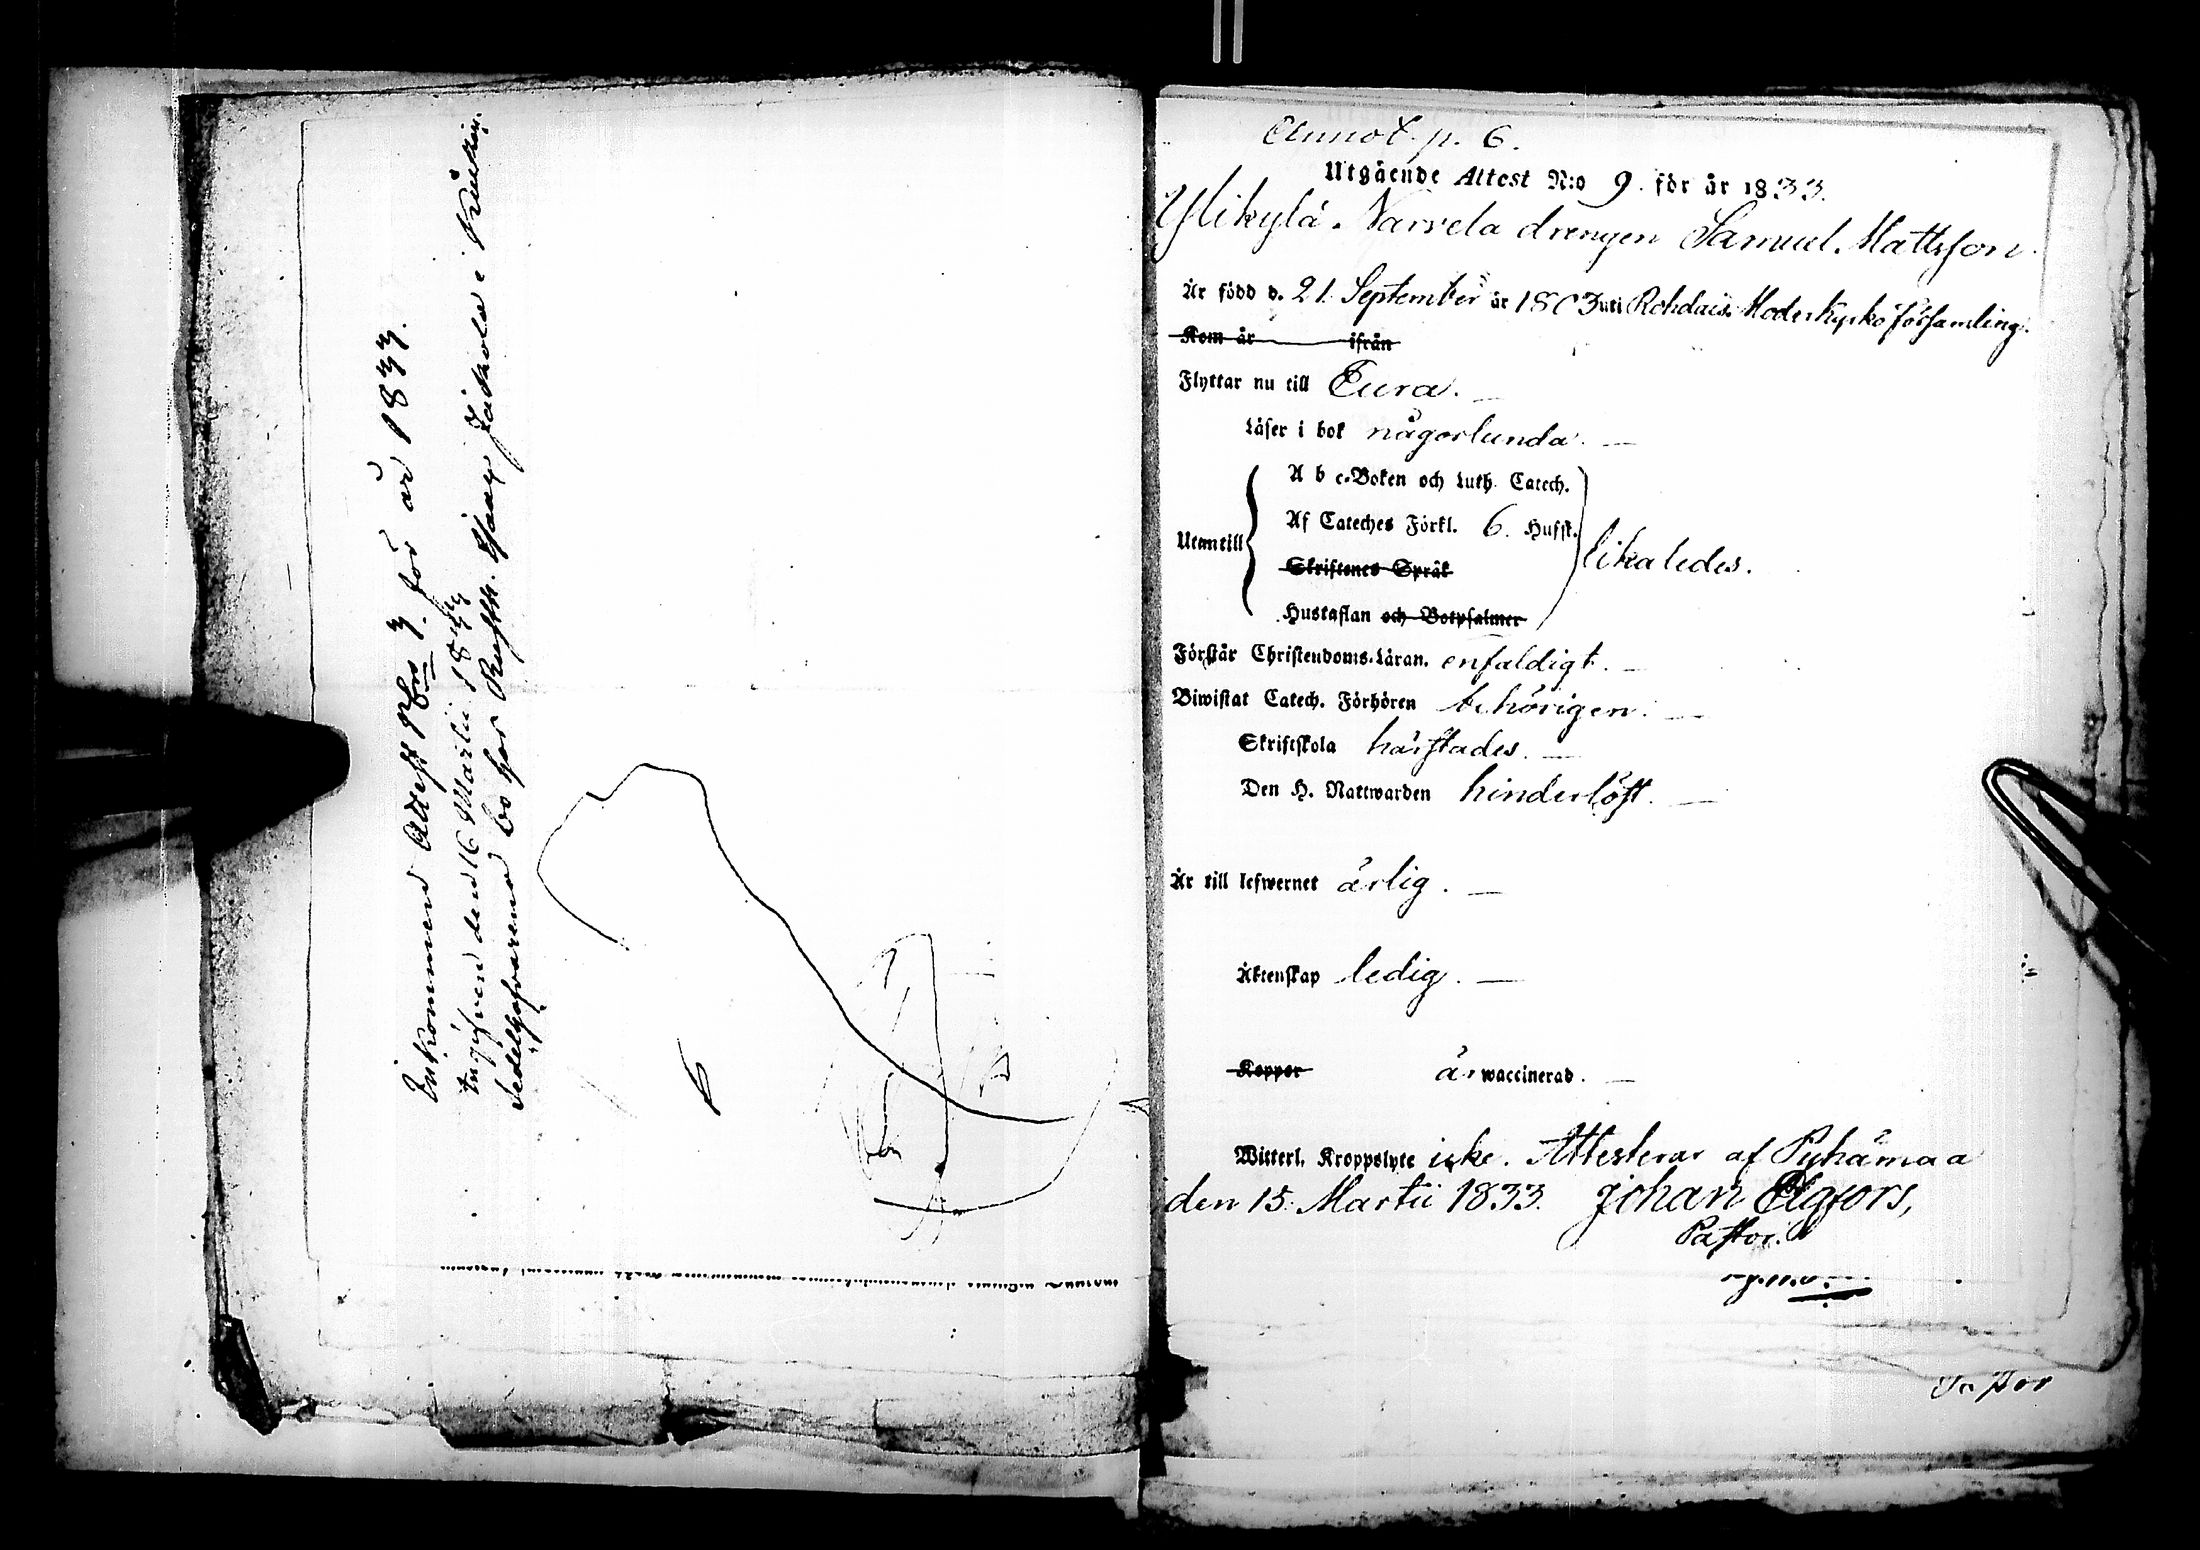 Inkommen Attest No 7. för år 1833.
Ingifven den 16 Martii 1833
Sedelhafvaren bo hos Rusth. Jaakola i
Annot. p. 6.
Utgående Attest N:o 9. för år 1833.
Ylikylä Narvela drengen Samuel Mattsson.
Är född d. 21 September år 1803 uti Rohdais Moderkyrko församling.
Kom år ifrån
Flyttar nu till Eura.
Läser i bok någorlunda.
A b c-Boken och Luth. Catech.
Af Cateches Förkl. 6. Hufst.
Utantill likaledes.
Skriftenes Språk
Hustaflan och Botpsalmer
Förstår Christendoms-Läran. enfaldigt.
Biwistat Catech. Förhören behörigen.
Skriftskola härstädes.
Den H. Nattwarden hinderlöst.
Är till lefwernet ärlig.
Äktenskap ledig.
Koppor är waccinerad.
Witterl. Kroppslyte icke. Attesterar af Pyhämaa
den 15. Martii 1833. Johan Elgfors,
Pastor.